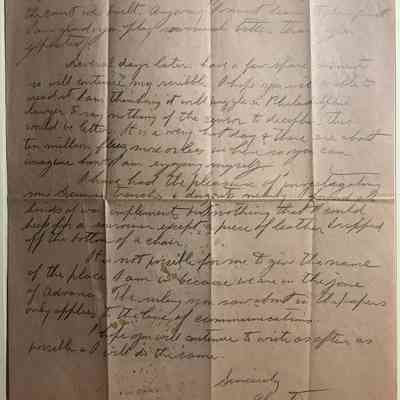 the court we built anyway. I
I am glad you play so much better than you
Several days later have a few spare moments
so will continue my scribble. I hope you will be able to
read it. I am thinking it will puzzle a Philadelphia
lawyer to say nothing of the censor to decipher this
would be letter. It is a very hot day & there are about
ten million flies more or less in here so you can
imagine how I am enjoying myself.
I have had the pleasure of investigating
some German trenches & dugouts
kinds of war implements but nothing that I could
keep for a souvenir except a piece of leather I ripped
off the bottom of a chair.
It is not possible for me to give the name
of the place I am in because we are in the zone
of Advance. The ruling you saw about in the papers
only applies to the line of communications.
I hope you will continue to write as often as
possible & I will do the same.
Sincerely